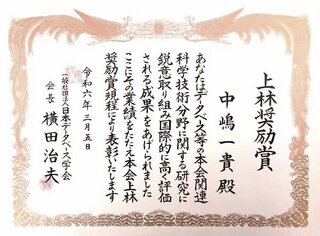 上林奨励賞
中嶋一貴殿
あなたはデータベース等の本会関連
科学技術分野に関する研究に
鋭意取り組み国際的に高く評価
される成果をあげられました
ここにその業績をたたえ本会上林
奨励賞規程により表彰いたします
令和六年三月五日
一般社団法人日本データベース学会
会長 横田治夫